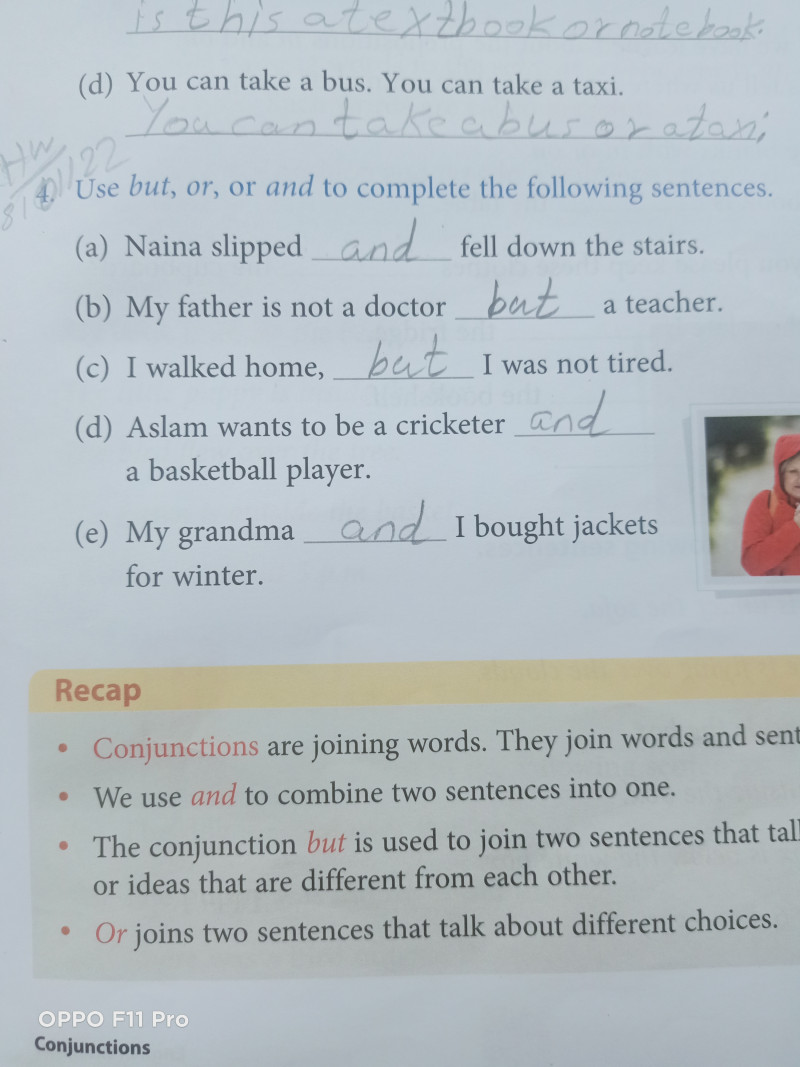 is this a textbook or notebook.
(d) You can take a bus. You can take a taxi.
You can take a bus or a taxi
HW
8/01/22
4. Use but, or, or and to complete the following sentences.
(a) Naina slipped and fell down the stairs.
(b) My father is not a doctor but a teacher.
(c) I walked home, but I was not tired.
(d) Aslam wants to be a cricketer and
a basketball player.
(e) My grandma and I bought jackets
for winter.
Recap
• Conjunctions are joining words. They join words and sent
• We use and to combine two sentences into one.
• The conjunction but is used to join two sentences that tal
or ideas that are different from each other.
• Or joins two sentences that talk about different choices.
OPPO F11 Pro
Conjunctions